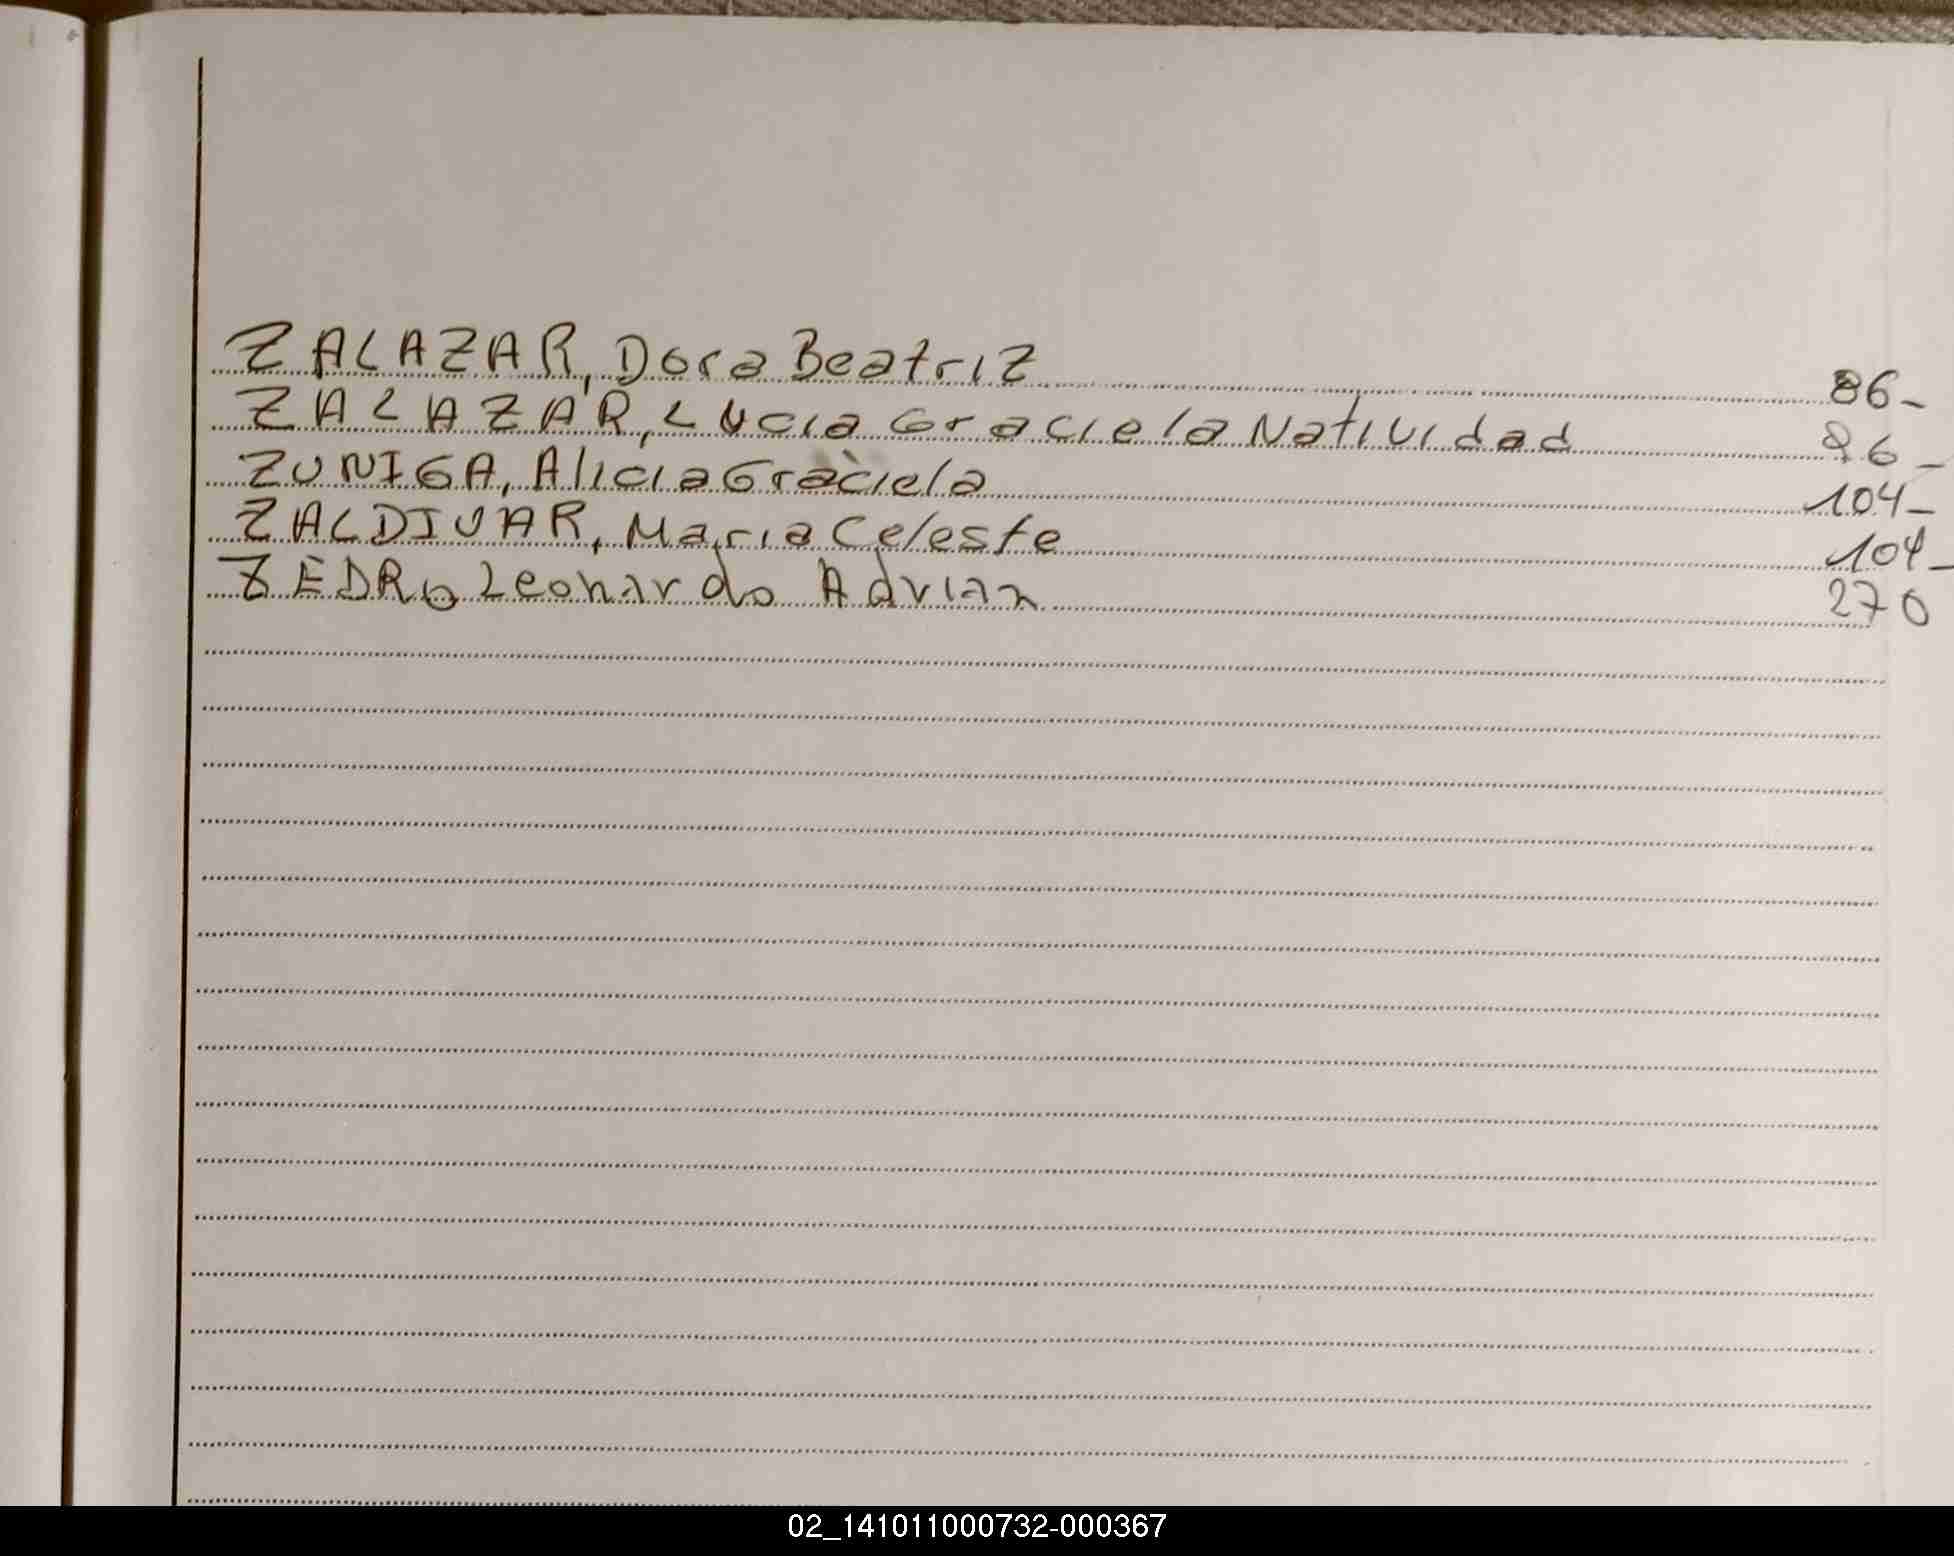 ZALAZAR, Dora Beatriz 86-
ZALAZAR, Lucia Graciela Natividad 86-
ZUNIGA, Alicia Graciela 104-
ZALDIVAR, Maria Celeste 104-
ZEDRO Leonardo Adrian 270
02_141011000732-000367